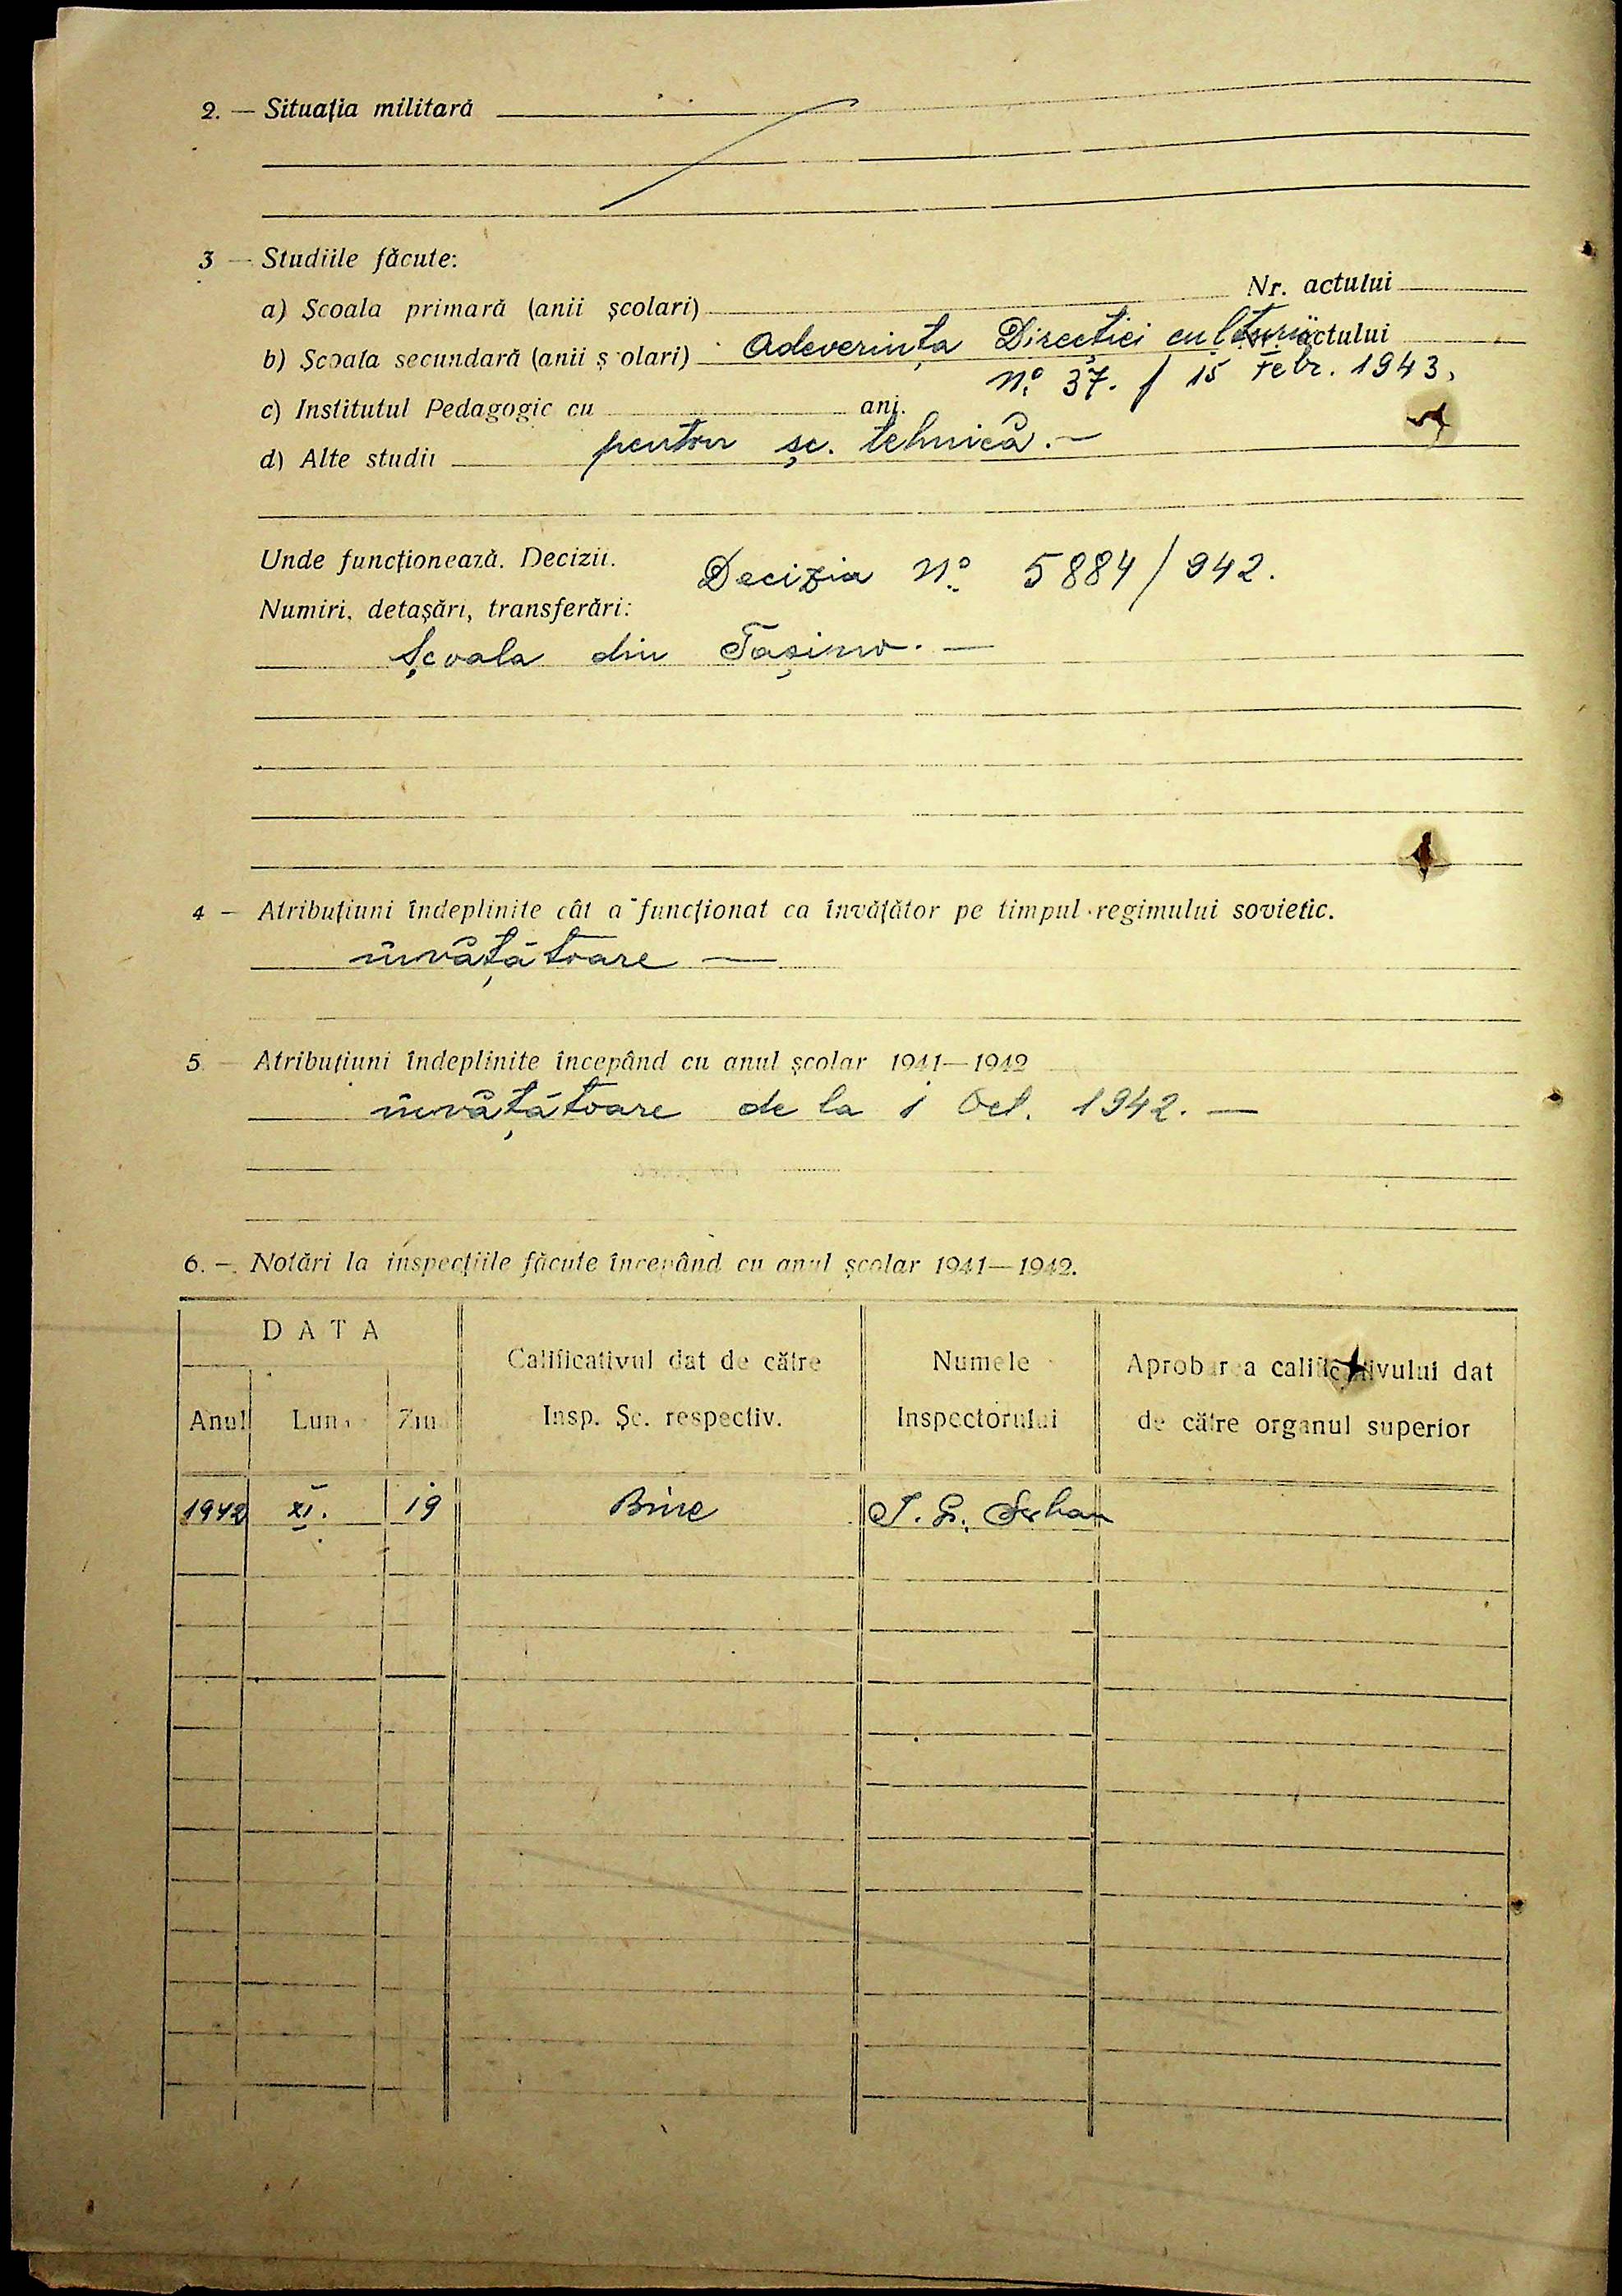 2. — Situația militară
3 — Studiile făcute:
a) Școala primară (anii școlari) Nr. actului
b) Școala secundară (anii ș olari) Adeverința Direcției culturii actului
Nº 37. / 15 Febr. 1943.
c) Institutul Pedagogic cu ani.
d) Alte studii pentru șc. tehnică. —
Unde funcționează. Decizii. Decizia Nº 5884/942.
Numiri, detașări, transferări:
Școala din Tașino. —
4 — Atribuțiuni îndeplinite cât a funcționat ca învățător pe timpul regimului sovietic.
învățătoare —
5 — Atribuțiuni îndeplinite începând cu anul școlar 1941—1942
învățătoare de la 1 Oct. 1942. —
6. — Notări la inspecțiile făcute începând cu anul școlar 1941—1942.
DATA
Calificativul dat de către Numele Aprobarea calificativului dat
Anul Luna Ziua Insp. Șc. respectiv. Inspectorului de către organul superior
1942 XI. 19 Bine I. G. Șerban